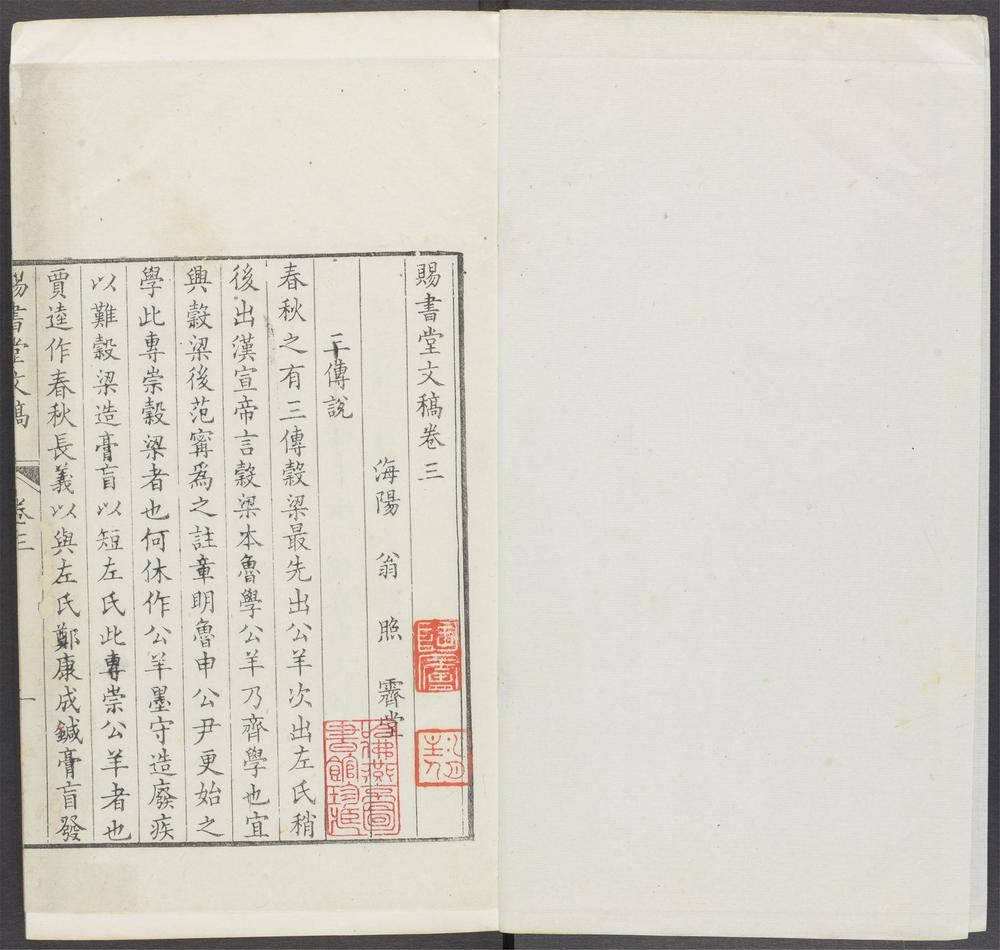 賜書堂文稿卷三
海陽 翁 照 霽堂
三傳說
春秋之有三傳穀梁最先出公羊次出左氏稍
後出漢宣帝言穀梁本魯學公羊乃齊學也宜
興穀梁後范甯爲之註章明魯申公尹更始之
學此專崇穀梁者也何休作公羊墨守造廢疾
以難穀梁造膏肓以短左氏此專崇公羊者也
賈逵作春秋長義以與左氏鄭康成鍼膏肓發
賜書堂文稿 卷三 一
哈佛燕京圖書館珍藏